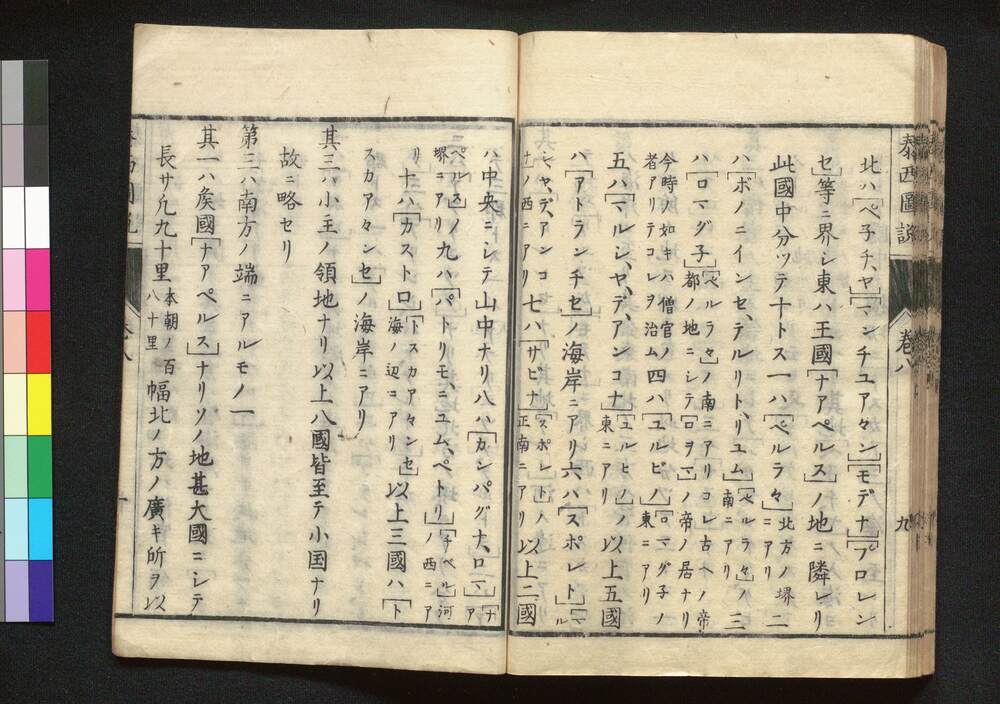 泰西圖説
卷八
九
北ハ「ペ子チ、ヤ」「マンチユアヤン」「モデナ」「フロレン
セ」等ニ界シ東ハ王國「ナアペルス」ノ地ニ隣レリ
此國中分ツテ十トス一ハ「ペルラ々」北方ノ堺ニアリ二
ハ「ポノニインセ、テルリト、リユム」「ペルラ々」ノ南ニアリ三
ハ「ロマグ子」「ペルラ々」ノ南ニアリコレ古ヘノ帝都ノ地ニシテ「ロヲマ」ノ帝ノ居ナリ
今時ノ如キハ僧官ノ者アリテコレヲ治ム四ハ「ユルビノ」「ロマグ子」ノ東ニアリ
五ハ「マルシ、ヤ、デ、アンコナ」「ユルヒノ」ノ東ニアリ以上五國
ハ「アトランチセ」ノ海岸ニアリ六ハ「スポレト」「マル
シ、ヤ、デ、アンコナ」ノ西ニアリ七ハ「サビナ」「スポレト」ノ正南ニアリ以上二國
ハ中央ニシテ山中ナリ八ハ「カンパグナ、ロマ」「ナア
ペルス」ノ堺ニアリ九ハ「パトリモ、ニユム、ペトリ」「チベル」河ノ西ニア
リ十ハ「カストロ」「トスカアヤンセ」海ノ辺ニアリ以上三國ハ「ト
スカアヤンセ」ノ海岸ニアリ
其三ハ小主ノ領地ナリ以上八國皆至テ小国ナリ
故ニ略セリ
第三ハ南方ノ端ニアルモノ一
其一ハ矦國「ナアペルス」ナリソノ地甚大國ニシテ
長サ凢九十里本朝ノ百八十里幅北ノ方ノ廣キ所ヲ以